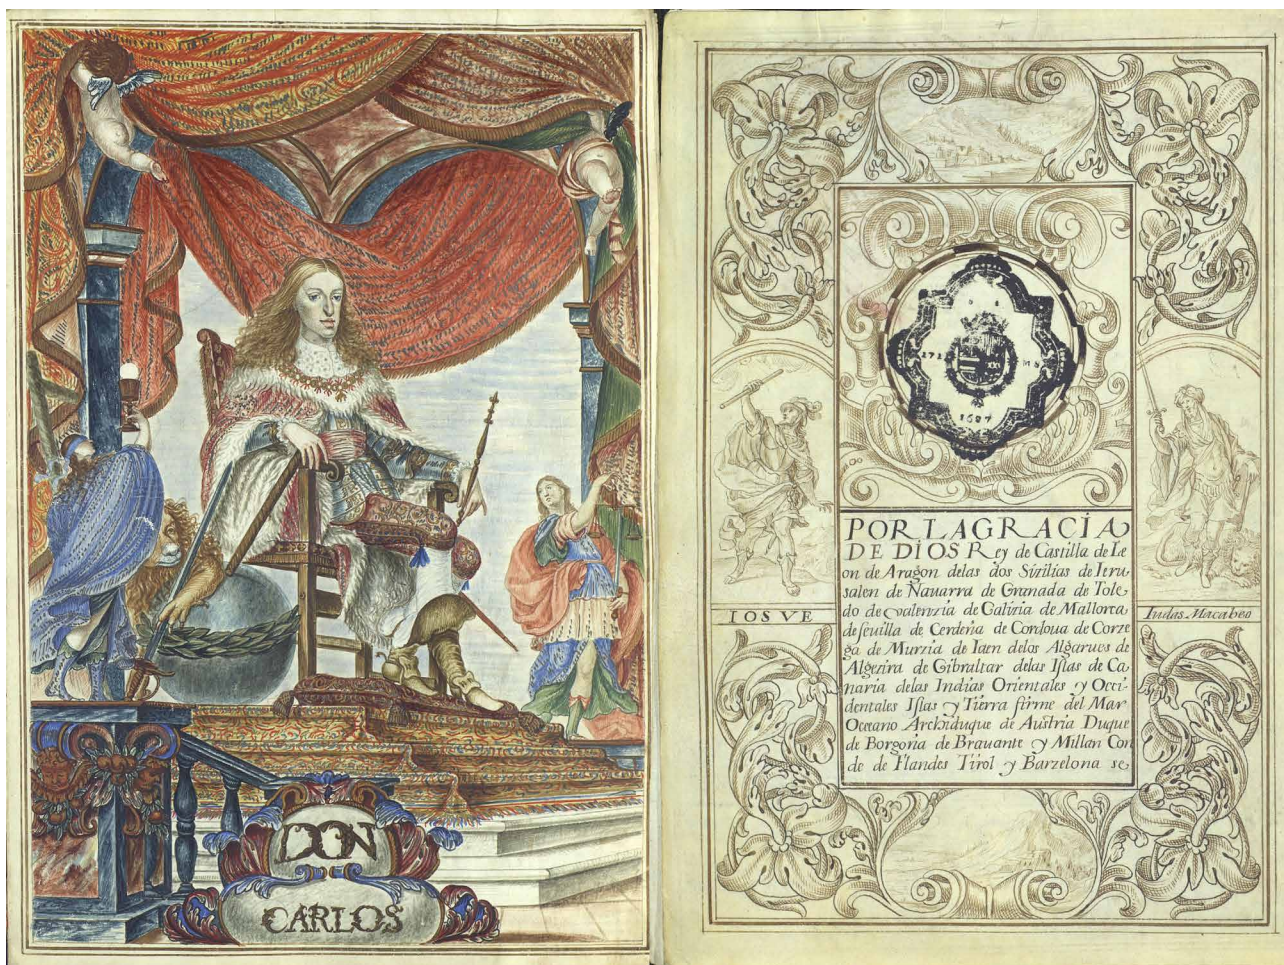 DON
CARLOS
1687
POR LA GRACIA
DE DIOS Rey de Castilla de Le
on de Aragon delas dos Sizilias de Ieru-
salen de Nauarra de Granada de Tole
do de valenzia de Galizia de Mallorca
de ſeuilla de Cerdeña de Cordoua de Corze
ga de Murzia de Iaen delos Algarues de
Algezira de Gibraltar delas Iſlas de Ca-
naria delas Indias Orientales y Occi-
dentales Iſlas y Tierra firme del Mar
Oceano Archiduque de Austria Duque
de Borgoña de Brauante y Millan Con
de de Flandes Tirol y Barzelona se
IOSVE
Iudas Macabeo